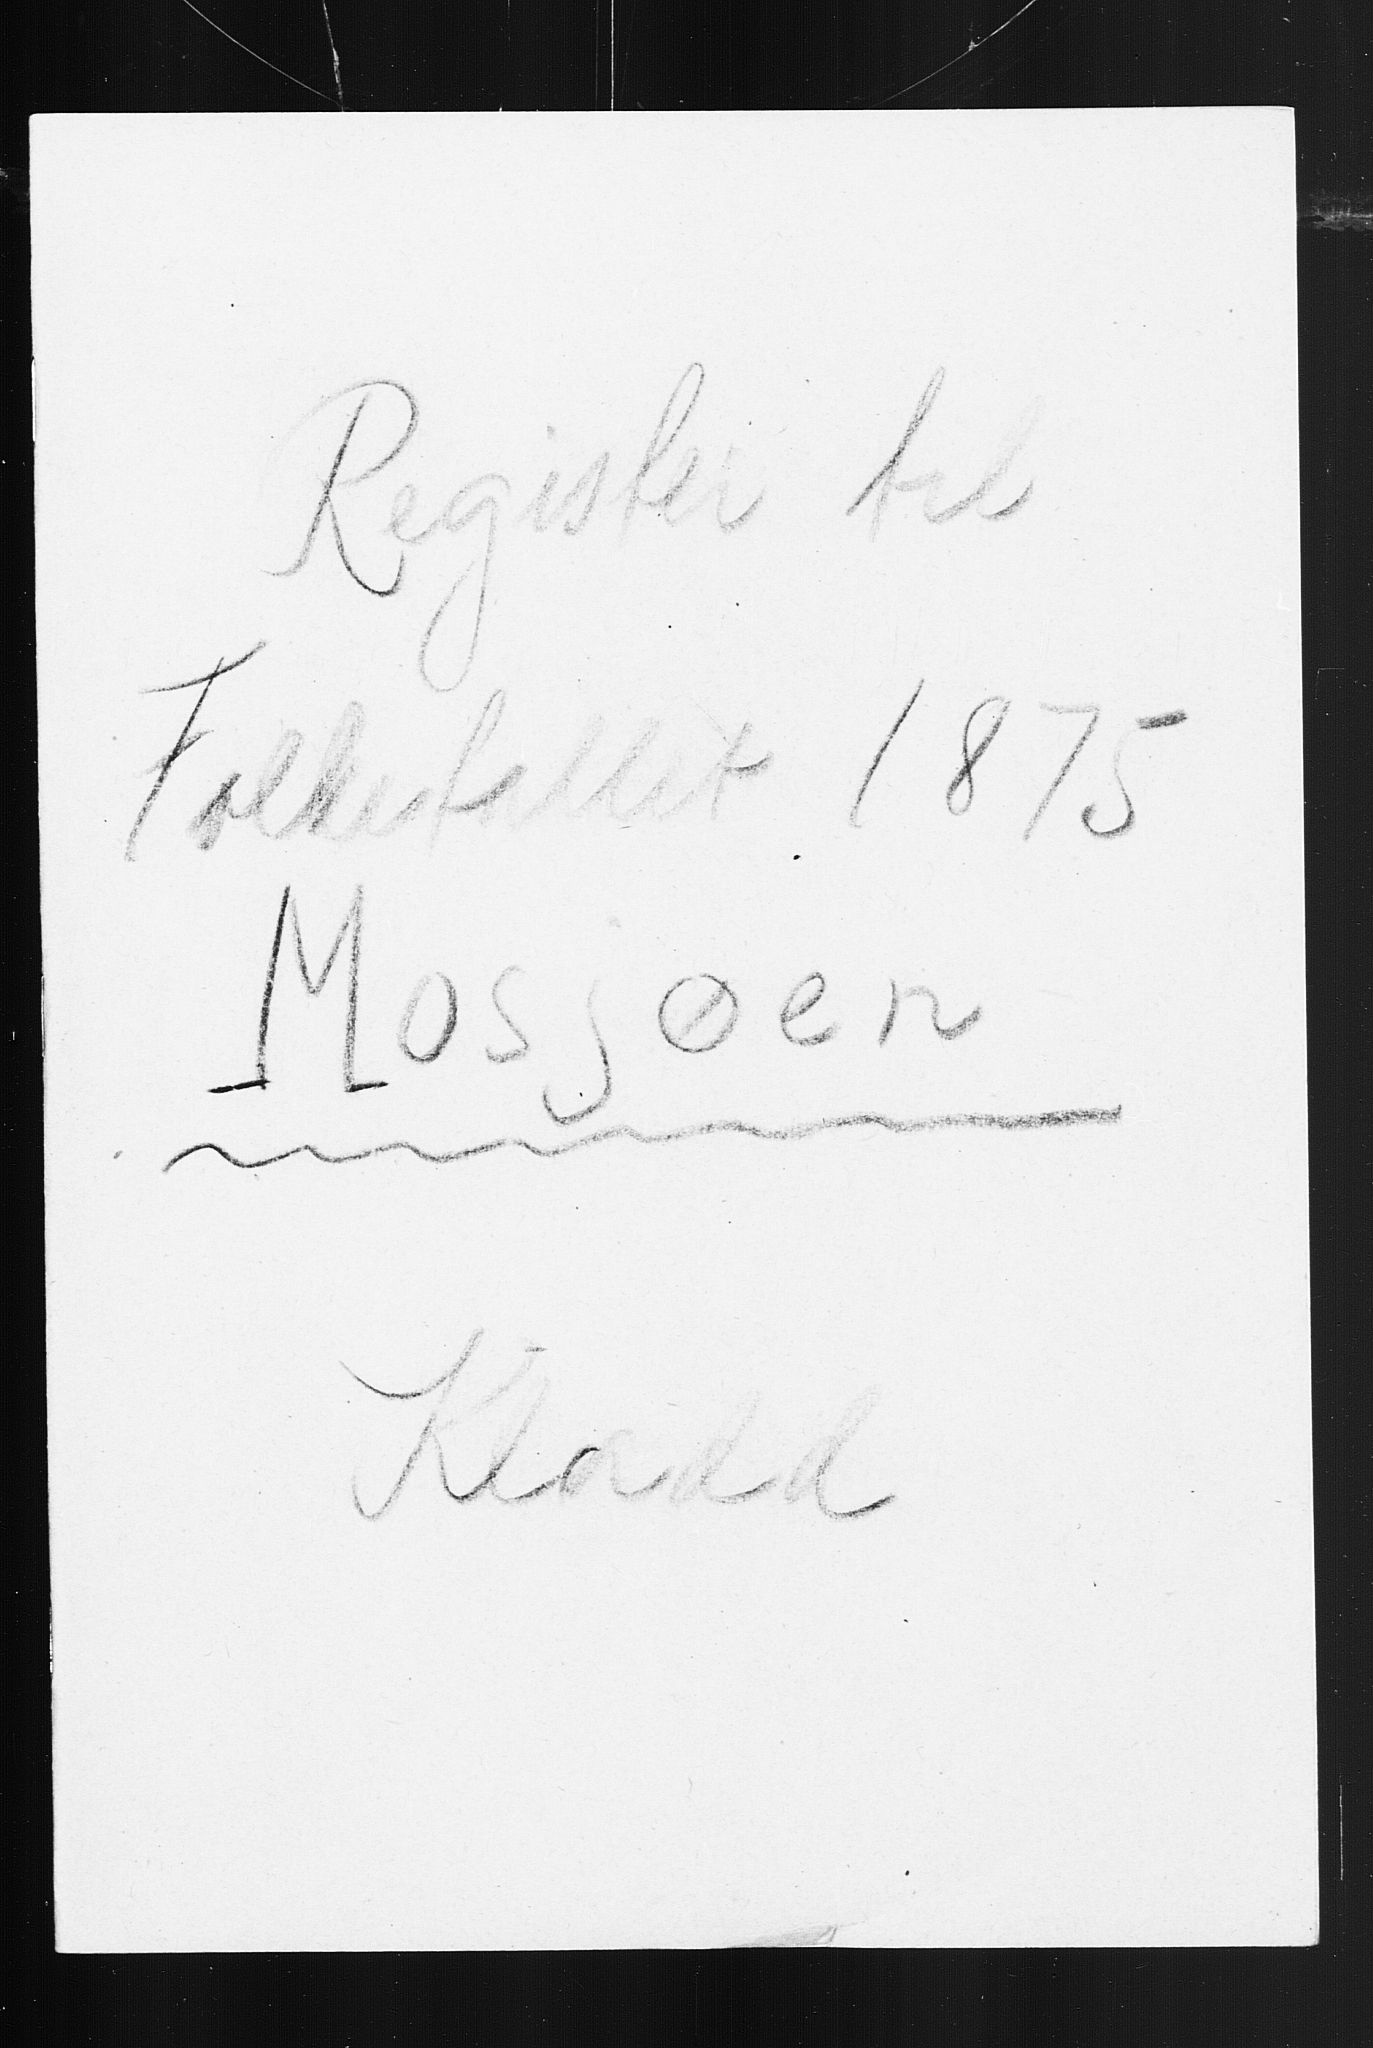 Register til
Folketallet 1875
Mosjøen
Kladd